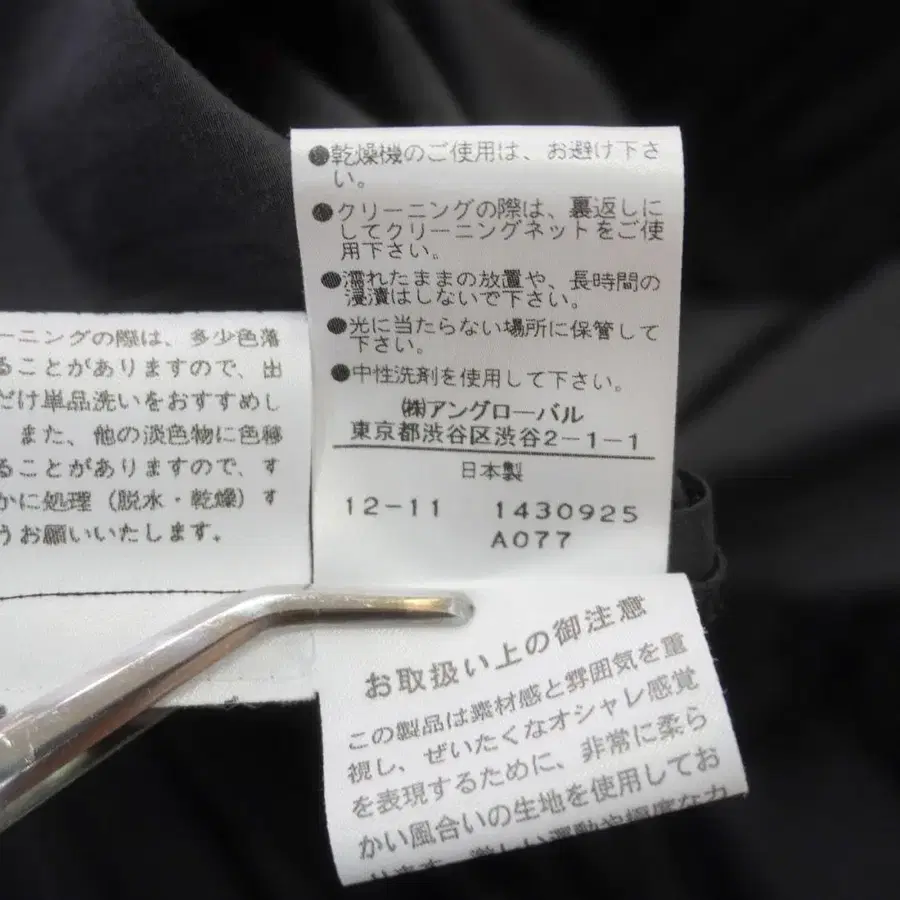 ●乾燥機のご使用は、お避け下さ
い。
●クリーニングの際は、裏返しに
してクリーニングネットをご使
用下さい。
●濡れたままの放置や、長時間の
浸漬はしないで下さい。
●光に当たらない場所に保管して
下さい。
●中性洗剤を使用して下さい。
㈱アングローバル
東京都渋谷区渋谷2-1-1
日本製
12-11 1430925
A077
ーニングの際は、多少色落
ることがありますので、出
だけ単品洗いをおすすめし
また、他の淡色物に色移
ることがありますので、す
かに処理（脱水・乾燥）す
うお願いいたします。
お取扱い上の御注意
この製品は素材感と雰囲気を重
視し、ぜいたくなオシャレ感覚
を表現するために、非常に柔ら
かい風合いの生地を使用してお
ります。激しい運動や